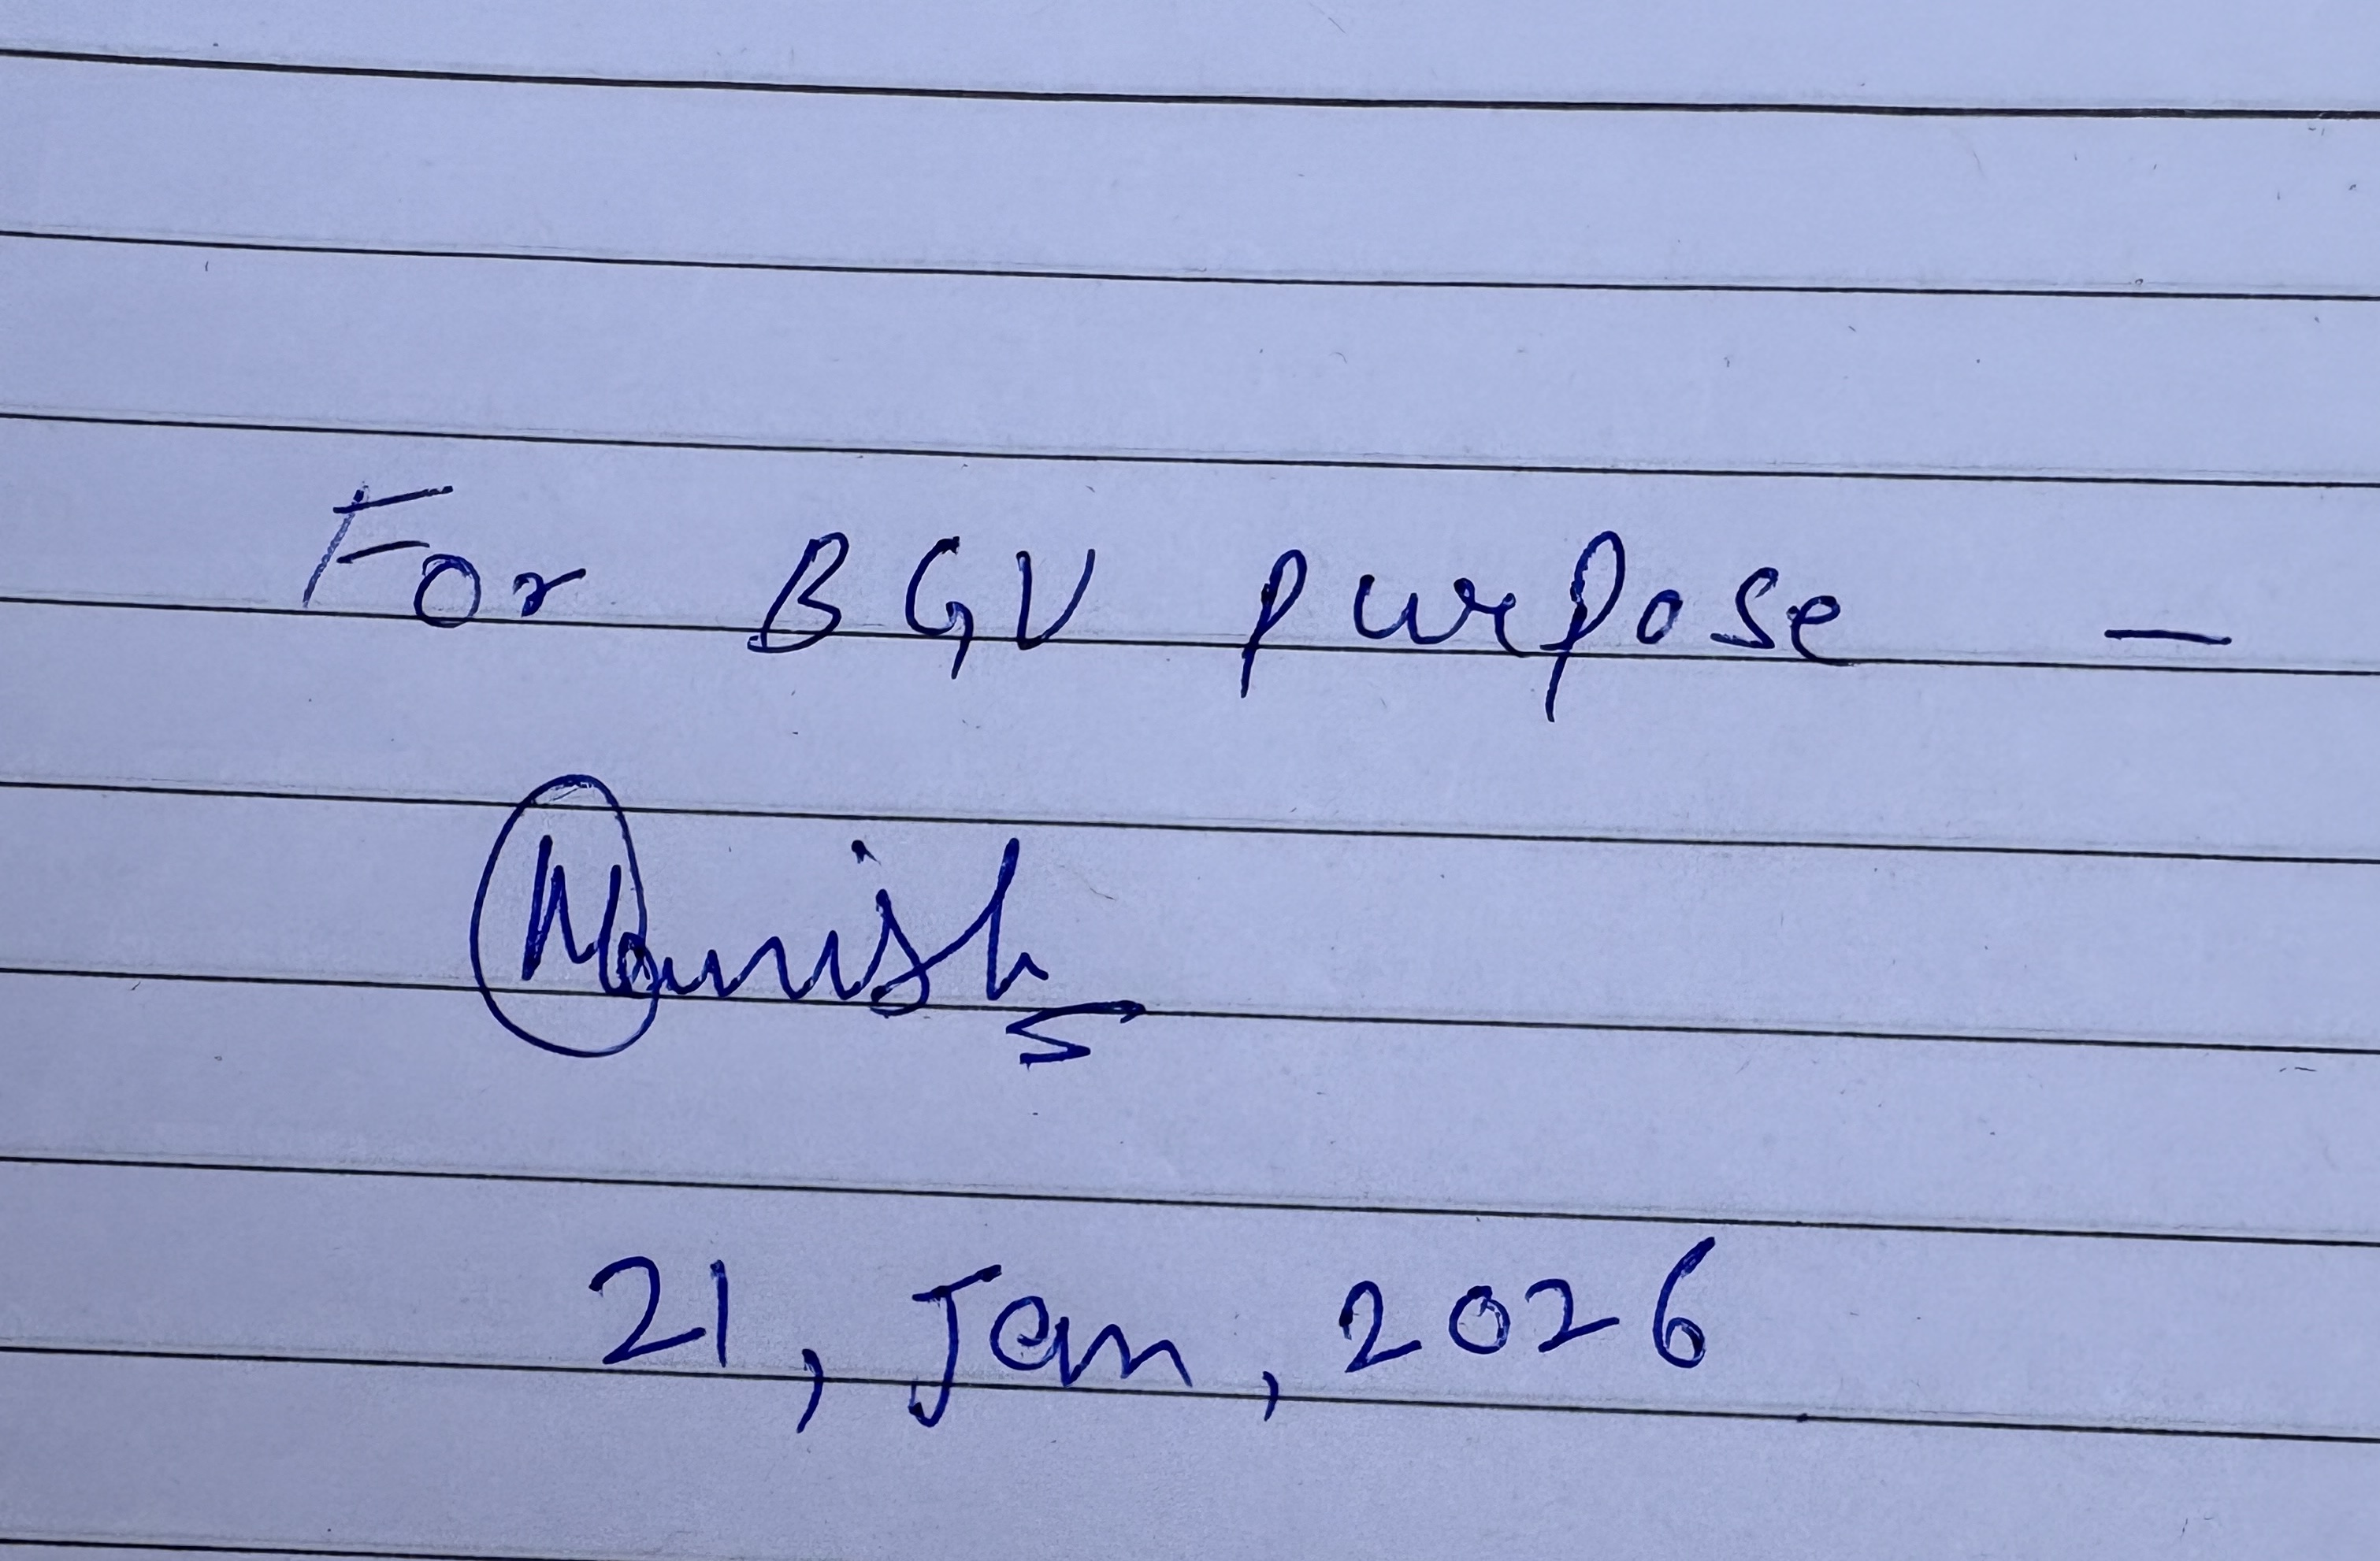 For BGV purpose -
Manish
21, Jan, 2026